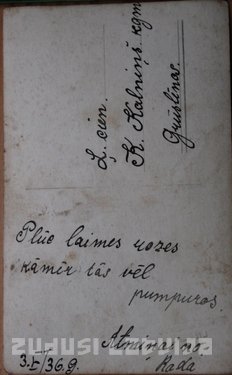 Ļ. cien.
K. Kalniņš kgm
Grūsliņas.
Plūc laimes rozes
kāmēr tās vēl
pumpuros.
Atmiņai no
3.I 36.g.
zudusi latvija